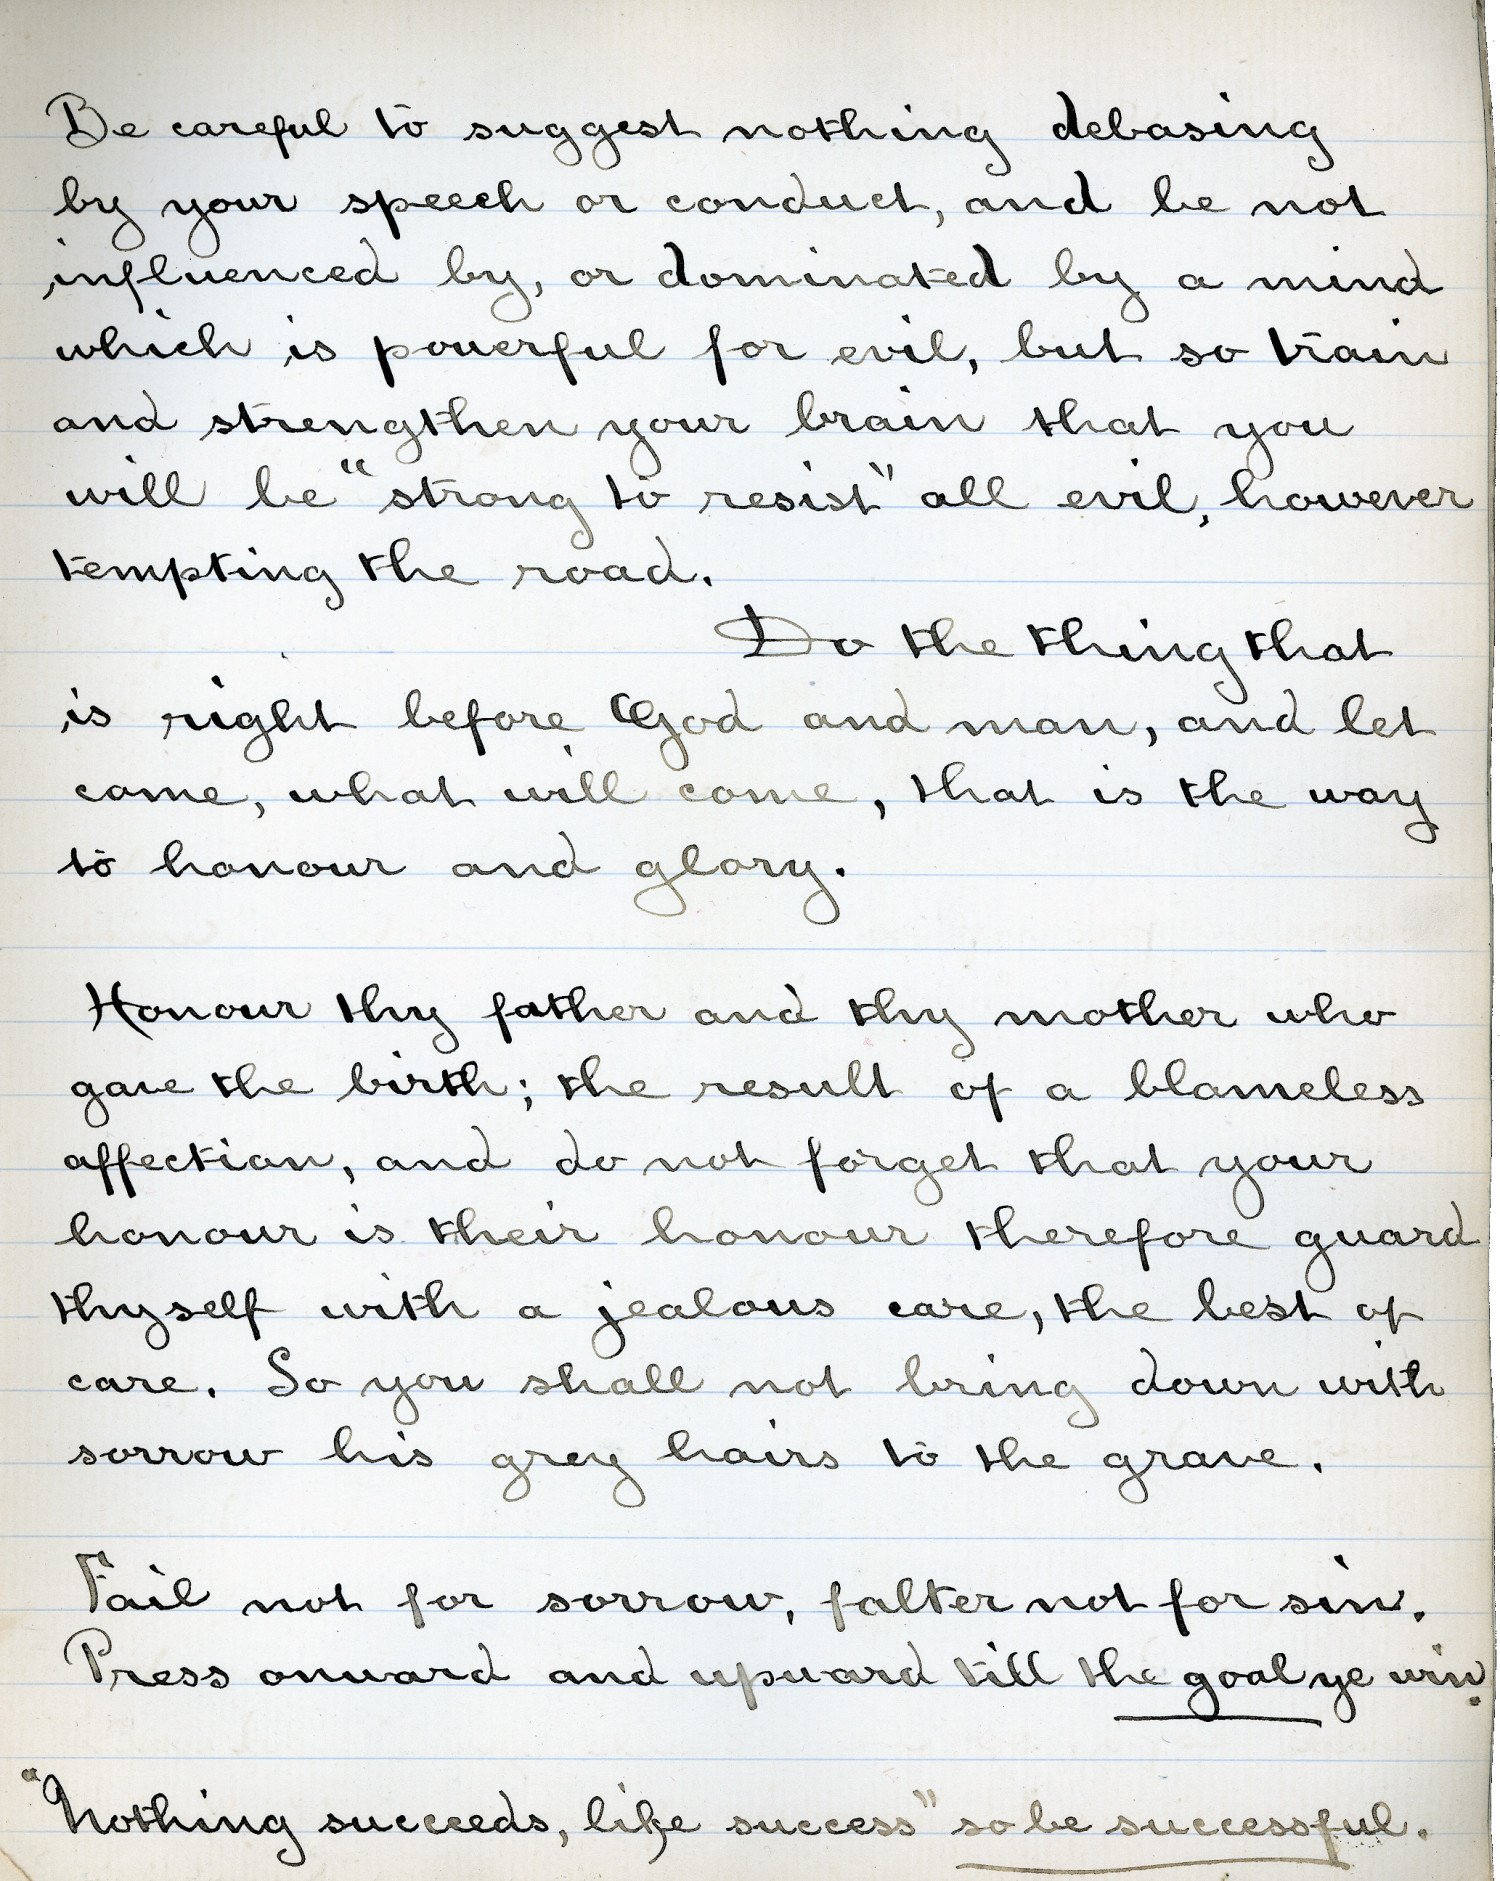 Be careful to suggest nothing debasing
by your speech or conduct, and be not
influenced by, or dominated by a mind
which is powerful for evil, but so train
and strengthen your brain that you
will be "strong to resist" all evil, however
tempting the road.
Do the thing that
is right before God and man, and let
come, what will come, that is the way
to honour and glory.
Honour thy father and thy mother who
gave the birth; the result of a blameless
affection, and do not forget that your
honour is their honour therefore guard
thyself with a jealous care, the best of
care. So you shall not bring down with
sorrow his grey hairs to the grave.
Fail not for sorrow, falter not for sin.
Press onward and upward till the goal ye win.
"Nothing succeeds, like success" so be successful.